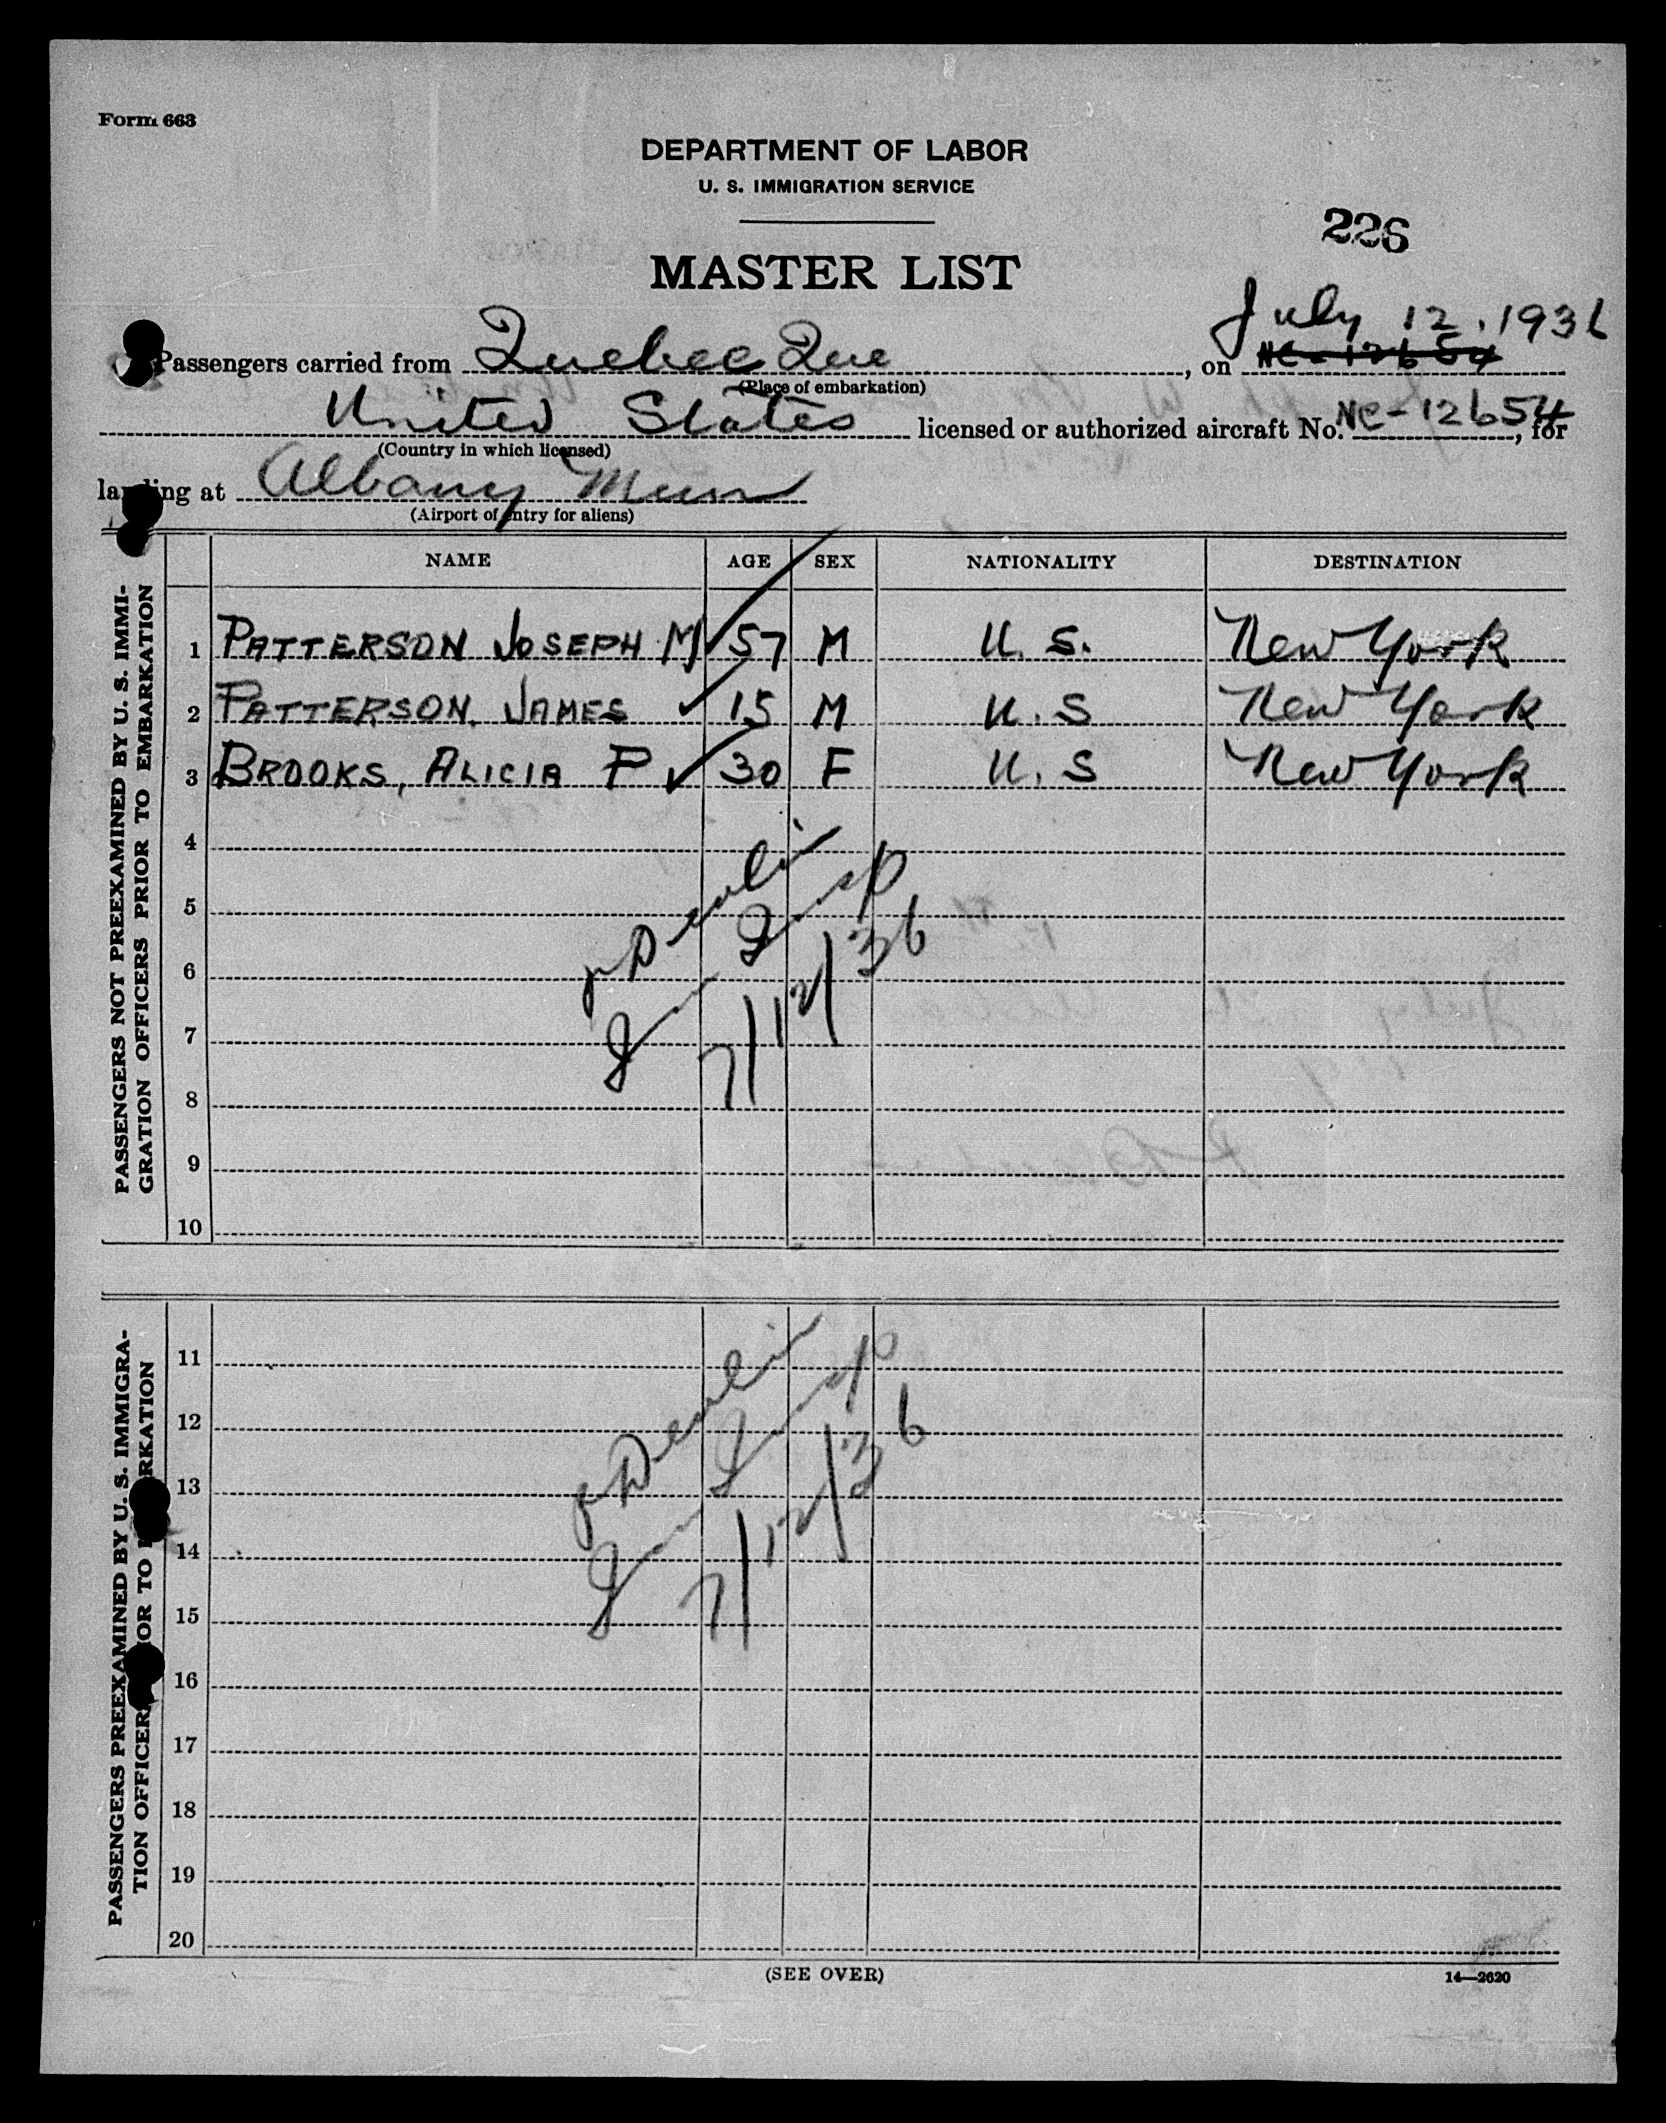 Form 663
DEPARTMENT OF LABOR
U. S. IMMIGRATION SERVICE
226
MASTER LIST
July 12, 1936
Passengers carried from Quebec Que, on NC-12654
(Place of embarkation)
United States licensed or authorized aircraft No. NC-12654, for
(Country in which licensed)
landing at Albany
(Airport of entry for aliens)
NAME AGE SEX NATIONALITY DESTINATION
PASSENGERS NOT PREEXAMINED BY U. S. IMMI-
GRATION OFFICERS PRIOR TO EMBARKATION
1 PATTERSON JOSEPH M ✓ 57 M U. S. New York
2 PATTERSON, JAMES ✓ 15 M U. S New York
3 BROOKS, ALICIA P ✓ 30 F U. S New York
4
5
6
7
8
9
10
Devlin
Imm Insp
7/12/36
PASSENGERS PREEXAMINED BY U. S. IMMIGRA-
TION OFFICER OR TO RKATION
11
12
13
14
15
16
17
18
19
20
Devlin
Imm Insp
7/12/36
(SEE OVER)
14—2620